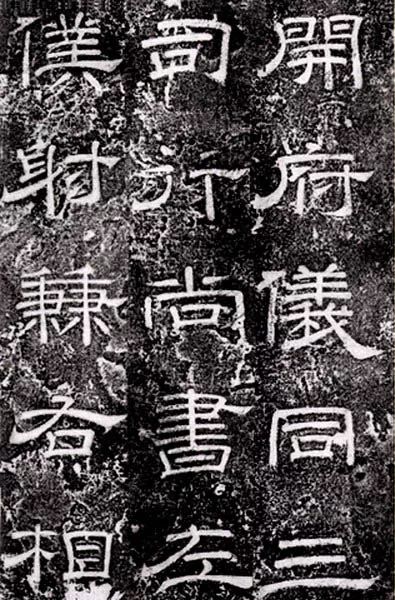 開府儀同三
司行尚書左
僕射兼右相